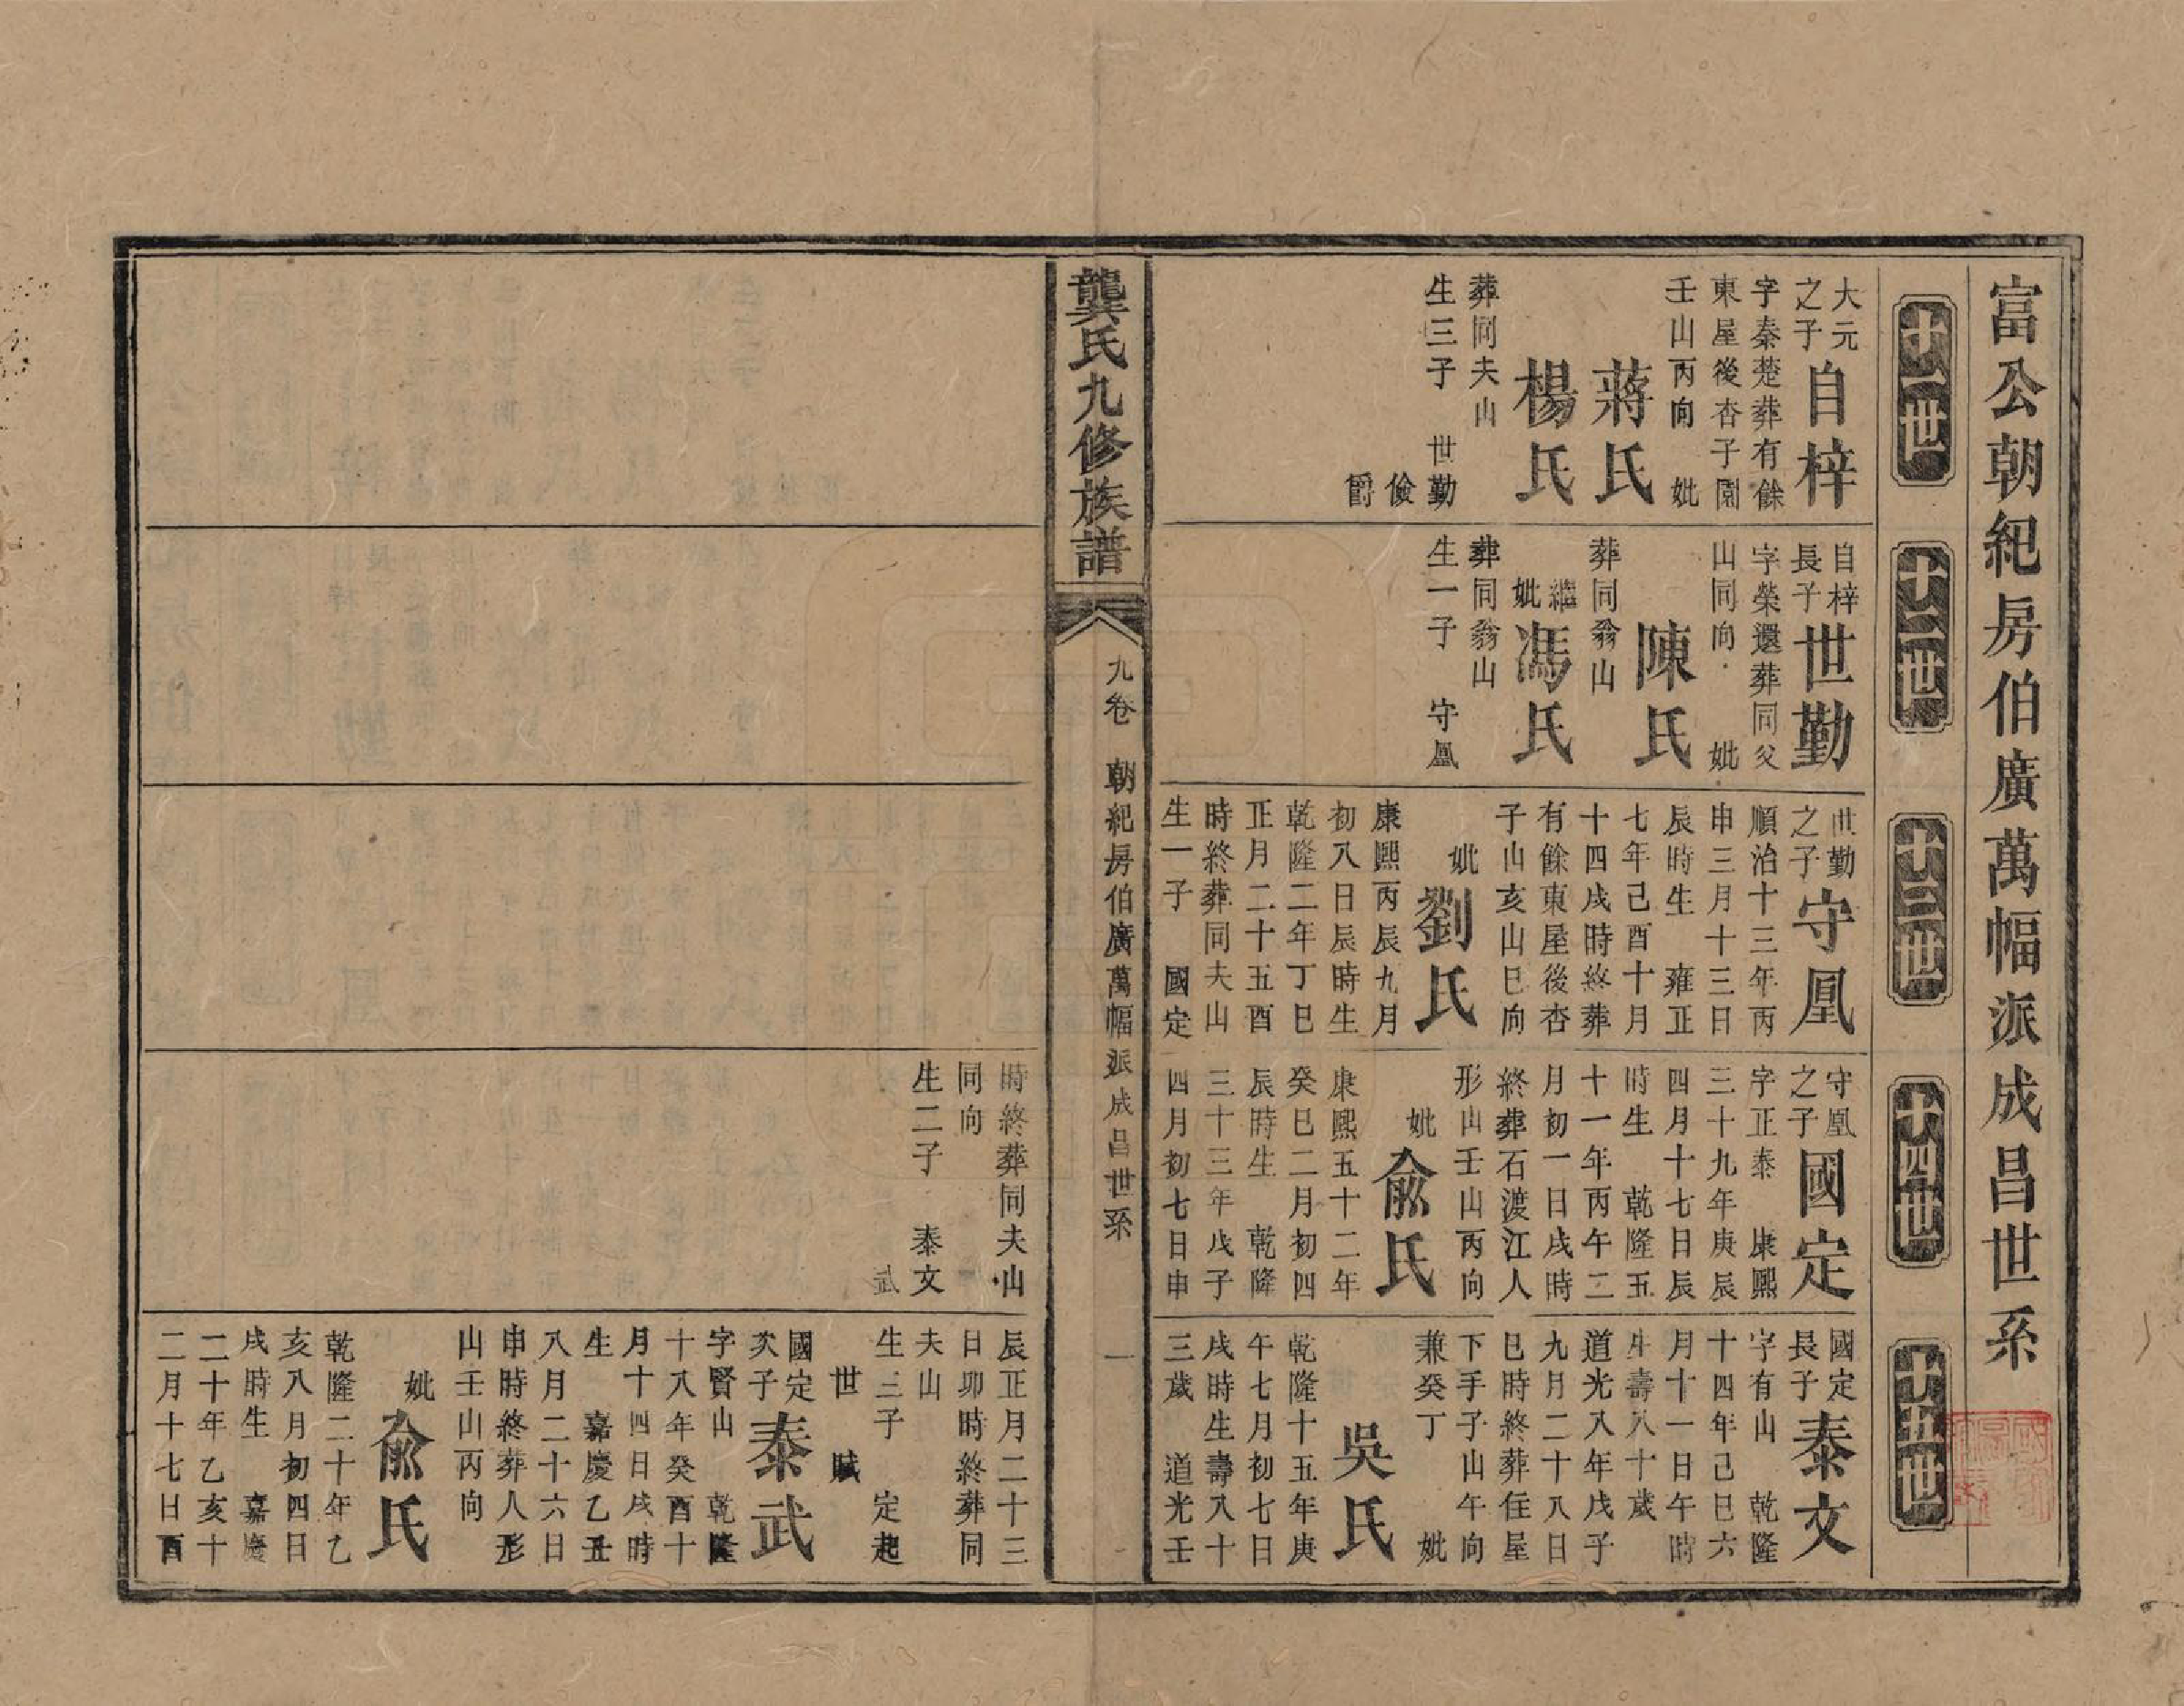 富公朝紀房伯廣萬幅派成昌世系
十一世
大元
之子
自梓
字秦楚葬有餘
東屋後杏子園
壬山丙向　妣
蔣氏
楊氏
葬同夫山
生三子　世勤
儉
爵
十二世
自梓
長子
世勤
字榮還葬同父
山同向　妣
陳氏
葬同翁山
繼
妣
馮氏
葬同翁山
生一子　守凰
十三世
世勤
之子
守凰
順治十三年丙
申三月十三日
辰時生　雍正
七年己酉十月
十四戌時終葬
有餘東屋後杏
子山亥山巳向
妣
劉氏
康熙丙辰九月
初八日辰時生
乾隆二年丁巳
正月二十五酉
時終葬同夫山
生一子　國定
十四世
守凰
之子
國定
字正泰　康熙
三十九年庚辰
四月十七日辰
時生　乾隆五
十一年丙午二
月初一日戌時
終葬石渡江人
形山壬山丙向
妣
俞氏
康熙五十二年
癸巳二月初四
辰時生　乾隆
三十三年戊子
四月初七日申
十五世
國定
長子
泰文
字有山　乾隆
十四年己巳六
月十一日午時
生壽八十歲
道光八年戊子
九月二十八日
巳時終葬住屋
下手子山午向
兼癸丁　妣
吳氏
乾隆十五年庚
午七月初七日
戌時生壽八十
三歲　道光壬
龔氏九修族譜
九卷　朝紀房伯廣萬幅派成昌世系　一
時終葬同夫山
同向
生二子　泰文
武
辰正月二十三
日卯時終葬同
夫山
生三子　定起
世
賦
國定
次子
泰武
字賢山　乾隆
十八年癸酉十
月十四日戌時
生　嘉慶乙丑
八月二十六日
申時終葬人形
山壬山丙向
妣
俞氏
乾隆二十年乙
亥八月初四日
戌時生　嘉慶
二十年乙亥十
二月十七日酉